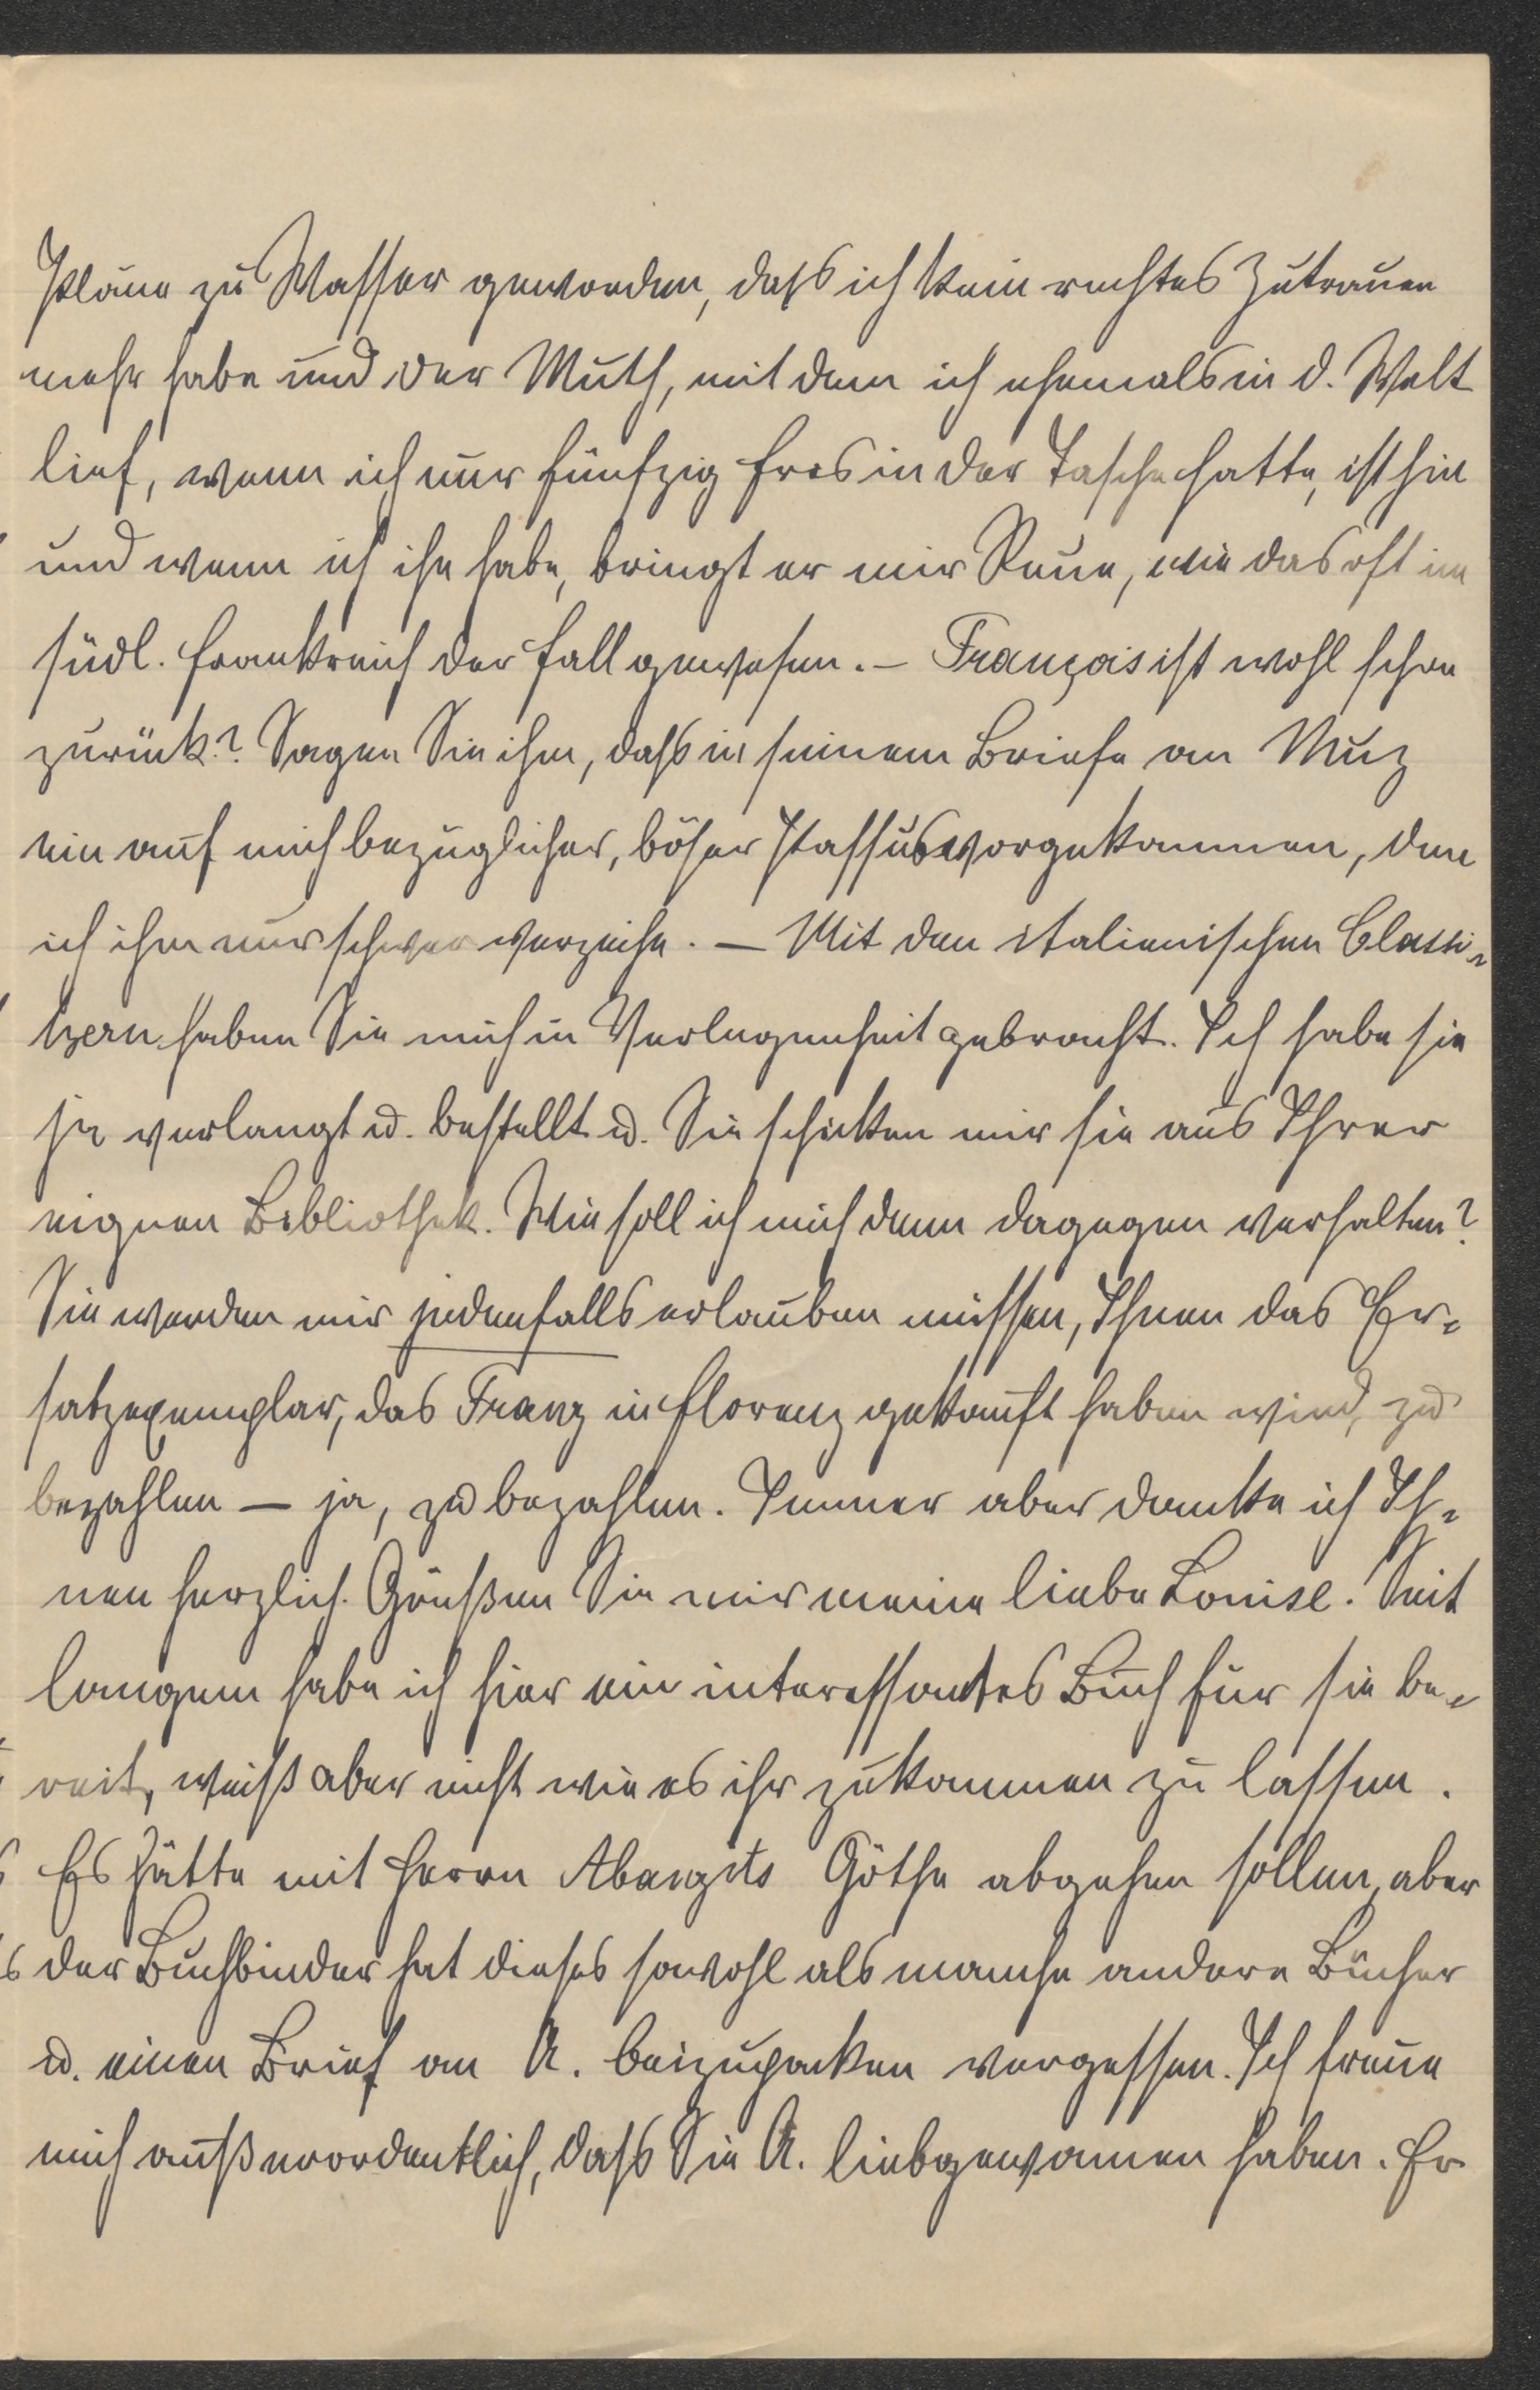 Pläne zu Wasser geworden, daß ich kein rechtes Zutrauen
mehr habe und der Muth, mit dem ich ehemals in d. Welt
lief, wenn ich nur fünfzig frcs in der Tasche hatte, ist hin
und wenn ich ihn habe, bringt er mir Reue, wie das oft im
südl. Frankreich der Fall gewesen. – François ist wohl schon
zurück? Sagen Sie ihm, daß in seinem Briefe an Muz
ein auf mich bezüglicher, böser Passus vorgekommen, den
ich ihm nur schwer verzeihe. – Mit den italienischen Classi-
kern haben Sie mich in Verlegenheit gebracht. Ich habe sie
ja verlangt u. bestellt u. Sie schicken mir sie aus Ihrer
eignen Bibliothek. Wie soll ich mich denn dagegen verhalten?
Sie werden mir jedenfalls erlauben müssen, Ihnen das Er-
satzexemplar, das Franz in Florenz gekauft haben wird, zu
bezahlen – ja, zu bezahlen. Immer aber danke ich Ih-
nen herzlich. Grüßen Sie mir meine liebe Louise. Seit
langem habe ich hier ein interessantes Buch für sie be-
reit, weiß aber nicht wie es ihr zukommen zu lassen.
Es hätte mit Herrn Abauzits Göthe abgehen sollen, aber
der Buchbinder hat dieses sowohl als manche andere Bücher
u. einen Brief an A. beizupacken vergessen. Ich freue
mich außerordentlich, daß Sie A. liebgewonnen haben. Er